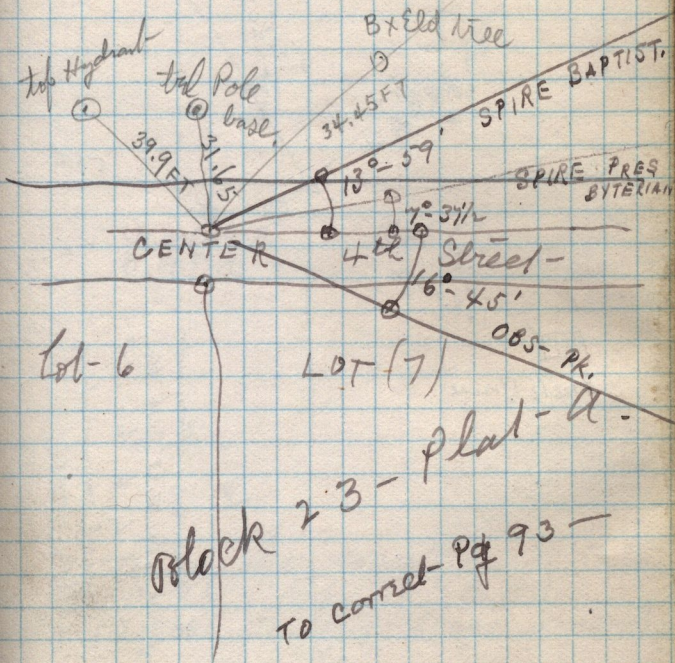 Bx Eld tree
top Hydrant
tel Pole
base.
39.9 FT
31.65
34.45 FT
SPIRE BAPTIST.
13°-59'
SPIRE PRES
BYTERIAN
7°-37½
CENTER
4th Street-
16°-45'
OBS- PK.
Lot-6
LOT (7)
Block 23- Plat- A.
To correct Pg 93-